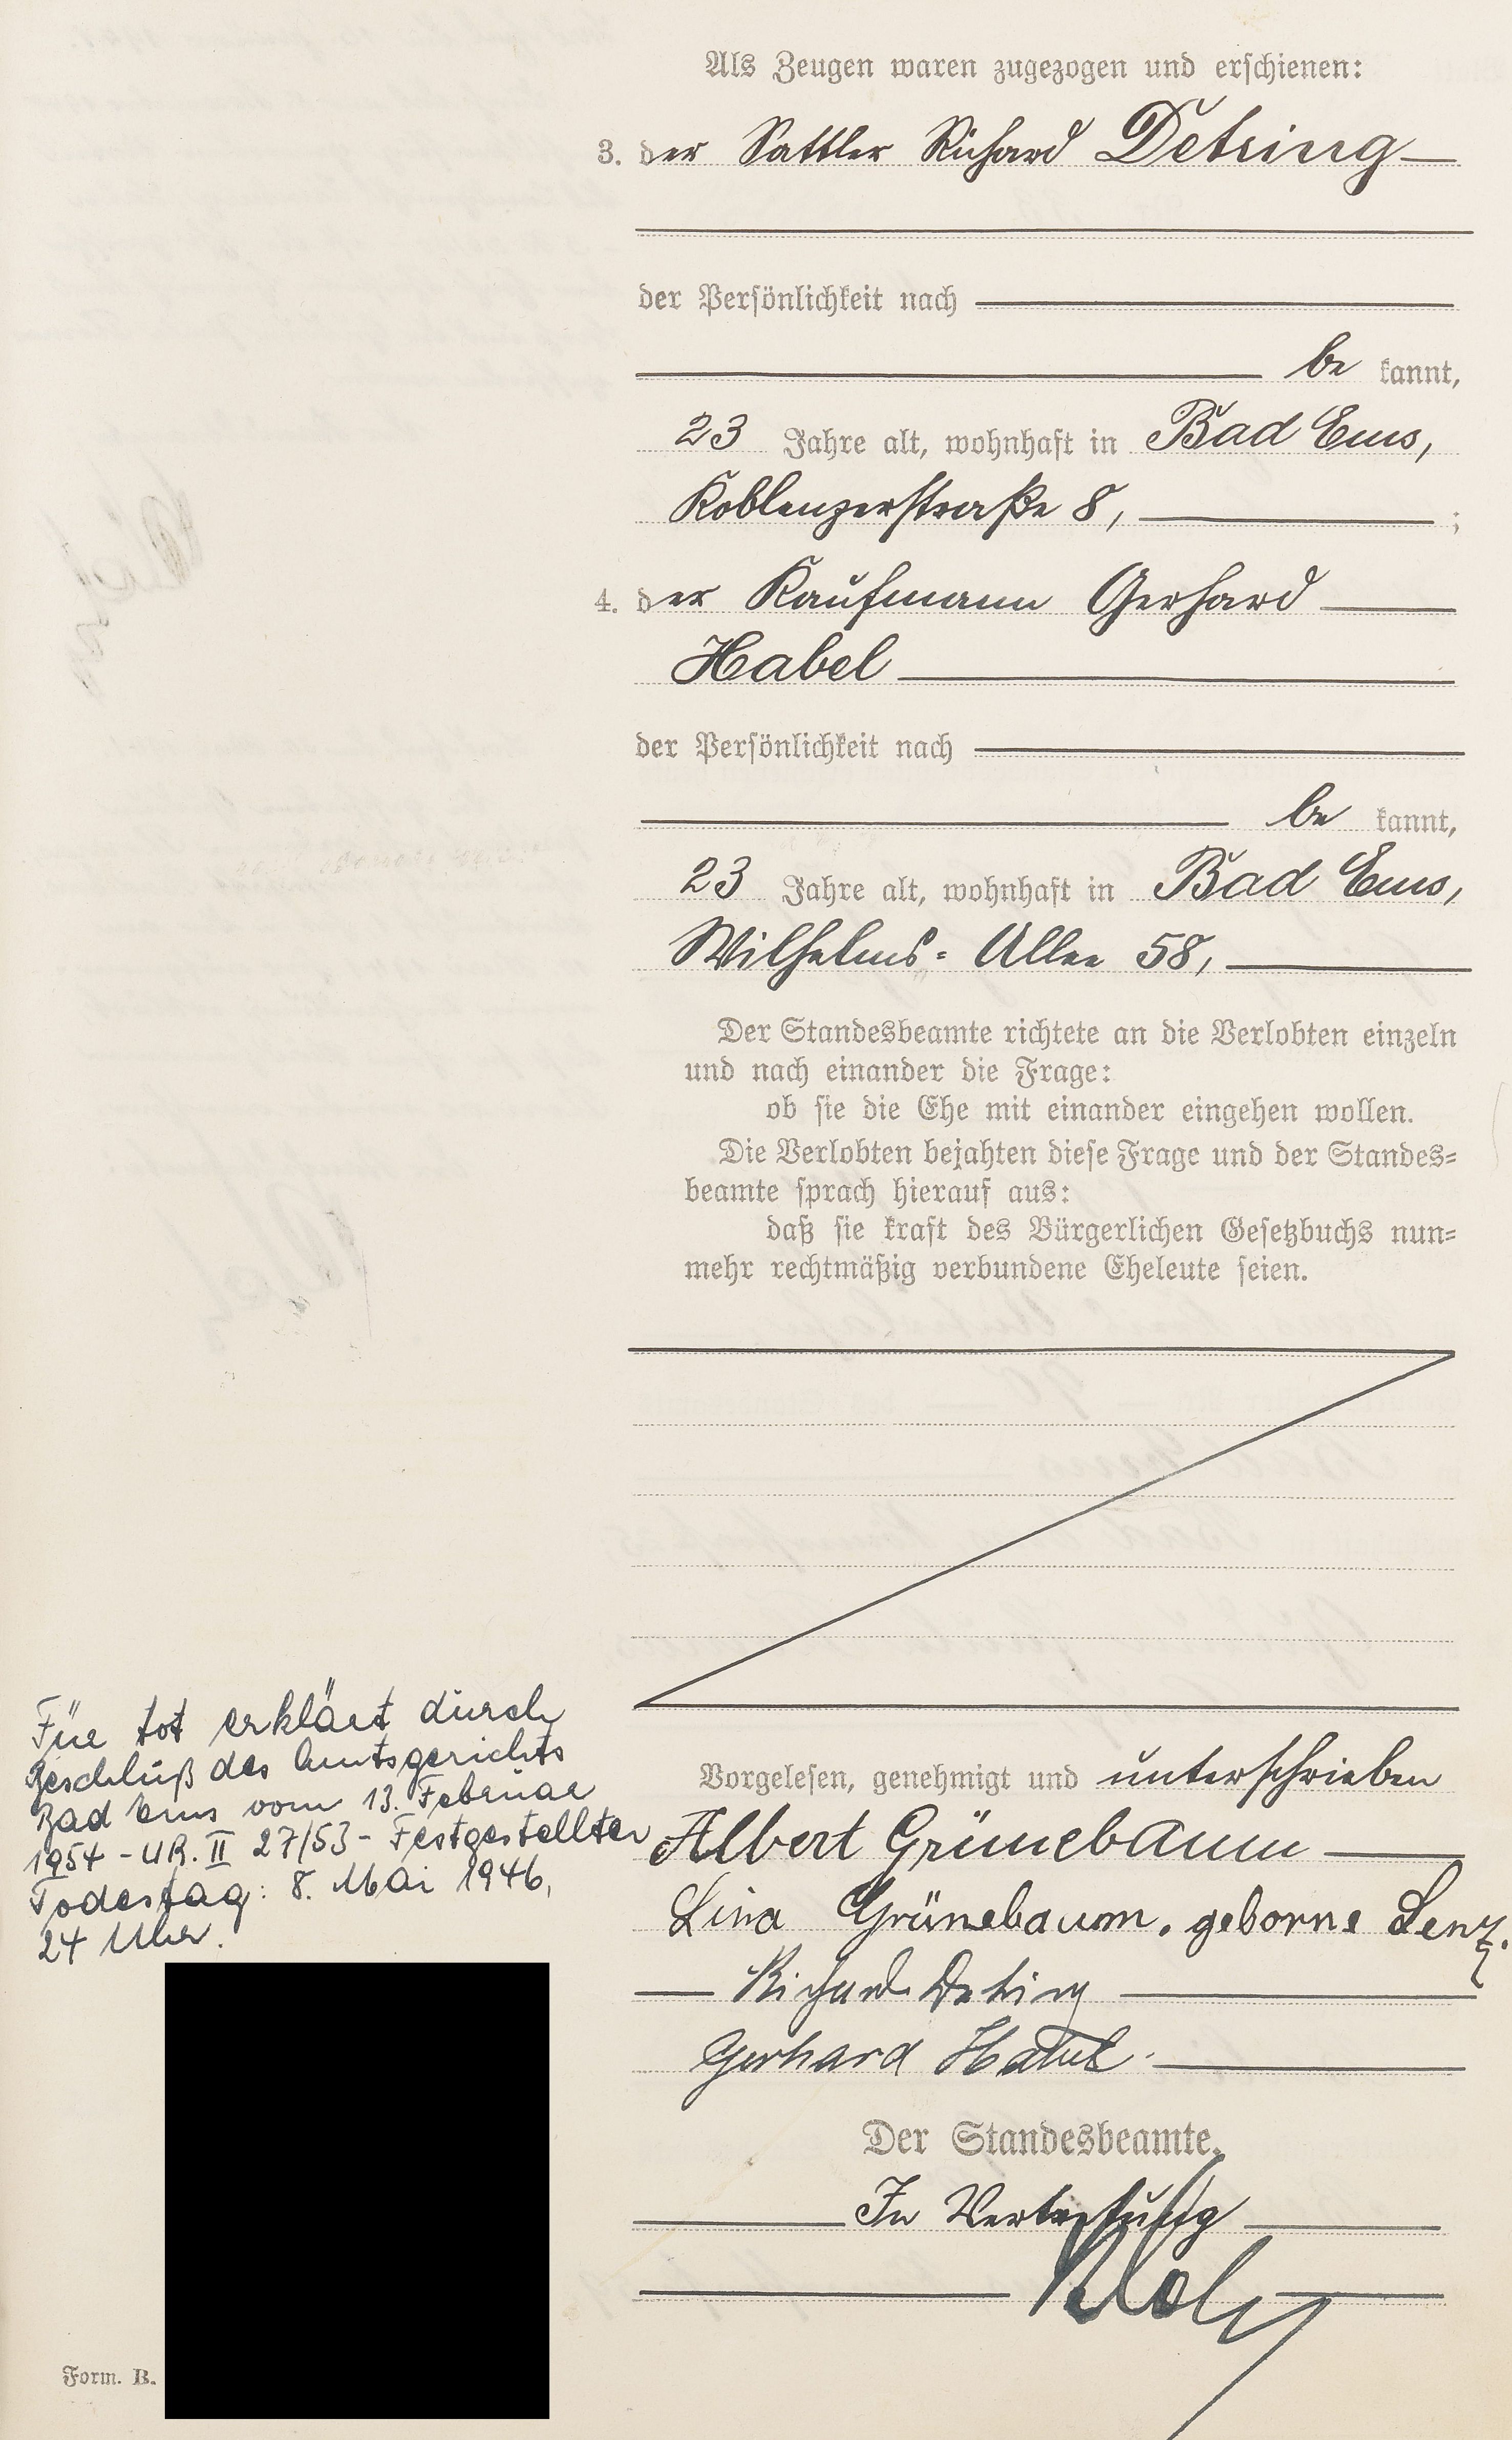 Als Zeugen waren zugezogen und erschienen:
3. der Sattler Richard Detring
der Persönlichkeit nach
be kannt,
23 Jahre alt, wohnhaft in Bad Ems,
Koblenzerstraße 8, ;
4. der Kaufmann Gerhard
Habel
der Persönlichkeit nach
be kannt,
23 Jahre alt, wohnhaft in Bad Ems,
Wilhelms= Allee 58,
Der Standesbeamte richtete an die Verlobten einzeln
und nach einander die Frage:
ob sie die Ehe mit einander eingehen wollen.
Die Verlobten bejahten diese Frage und der Standes=
beamte sprach hierauf aus:
daß sie kraft des Bürgerlichen Gesetzbuchs nun=
mehr rechtmäßig verbundene Eheleute seien.
Für tot erklärt durch
Beschluß des Amtsgerichts
Bad Ems vom 13. Februar
1954 - UR. II 27/53 - Festgestellter
Todestag: 8. Mai 1946,
24 Uhr.
Vorgelesen, genehmigt und unterschrieben
Albert Grünebaum
Lina Grünebaum, geborne Lenz.
Richard Detring
Gerhard Habel
Der Standesbeamte.
In Vertretung
Form. B.